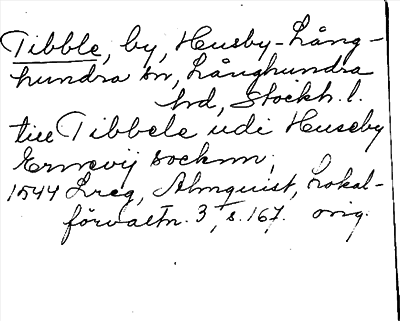 Tibble, by, Husby-Lång-
hundra sn, Långhundra
hd, Stockh. l.
till Tibbele udi Huseby
Ermevij socknn,
1544 Lreg, Almquist, Lokal-
förvaltn. 3, s. 167. orig.